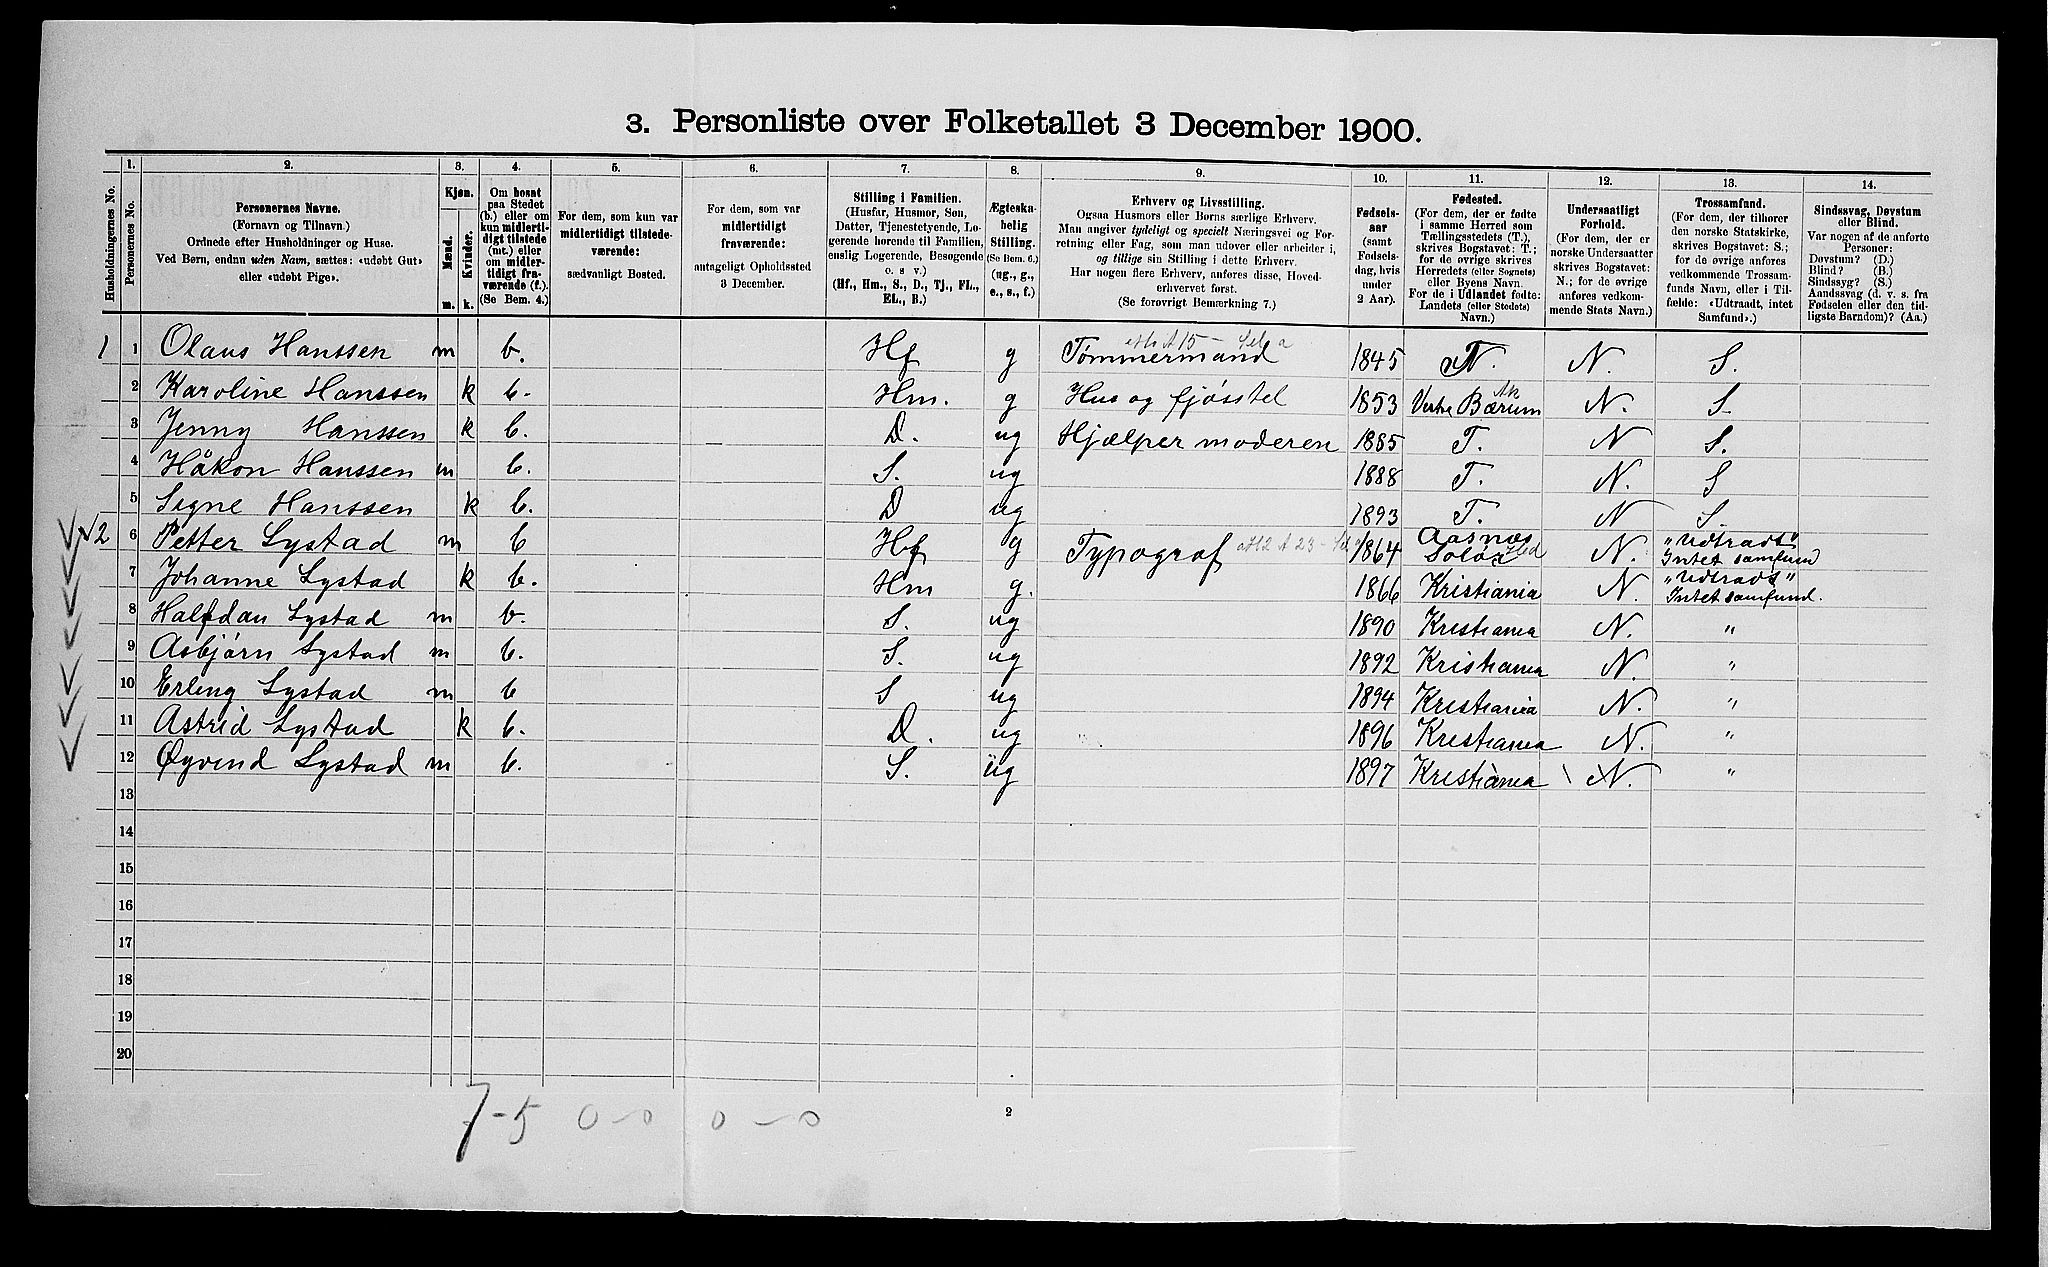 3. Personliste over Folketallet 3 December 1900.
Husholdningernes No.
1.
Personernes No.
2.
Personernes Navne.
(Fornavn og Tilnavn.)
Ordnede efter Husholdninger og Huse.
Ved Børn, endnu uden Navn, sættes: «udøbt Gut»
eller «udøbt Pige».
3.
Kjøn.
Mænd.
Kvinder.
m. k.
4.
Om bosat
paa Stedet
(b.) eller om
kun midlerti-
digt tilstede
(mt.) eller
om midler-
tidigt fra-
værende (f.).
(Se Bem. 4.)
5.
For dem, som kun var
midlertidigt tilstede-
værende:
sædvanligt Bosted.
6.
For dem, som var
midlertidigt
fraværende:
antageligt Opholdssted
3 December.
7.
Stilling i Familien.
(Husfar, Husmor, Søn,
Datter, Tjenestetyende, Lo-
gerende hørende til Familien,
enslig Logerende, Besøgende
o. s v.)
(Hf., Hm., S., D., Tj., FL.,
EL., B.)
8.
Ægteska-
belig
Stilling.
(Se Bem. 6.)
(ug., g.,
e., s., f.)
9.
Erhverv og Livsstilling.
Ogsaa Husmors eller Børns særlige Erhverv.
Man angiver tydeligt og specielt Næringsvei og For-
retning eller Fag, som man udover eller arbeider i,
og tillige sin Stilling i dette Erhverv.
Har nogen flere Erhverv, anføres disse, Hoved-
erhvervet først.
(Se forøvrigt Bemærkning 7.)
10.
Fødsels-
aar
(samt
Fødsels-
dag, hvis
under
2 Aar).
11.
Fødested.
(For dem, der er fødte
i samme Herred som
Tællingsstedets (T.),
skrives Bogstavet: T.;
for de øvrige skrives
Herredets (eller Sognets)
eller Byens Navn.
For de i Udlandet fødte:
Landets (eller Stedets)
Navn.)
12.
Undersaatligt
Forhold.
(For dem, der er
norske Undersaatter
skrives Bogstavet:
N.; for de øvrige
anføres vedkom-
mende Stats Navn.)
13.
Trossamfund.
(For dem, der tilhører
den norske Statskirke,
skrives Bogstavet: S.;
for de øvrige anføres
vedkommende Trossam-
funds Navn, eller i Til-
fælde: «Udtraadt, intet
Samfund».)
14.
Sindssvag, Døvstum
eller Blind.
Var nogen af de anførte
Personer:
Døvstum? (D.)
Blind? (B.)
Sindssyg? (S.)
Aandssvag (d. v. s. fra
Fødselen eller den tid-
ligste Barndom)? (Aa.)
1 1 Olaus Hanssen m b. Hf g Tømmermand 1845 T. N. S.
2 Karoline Hanssen k b. Hm. g Hus og fjøsstel 1853 Vestre Bærum Ak N. S
3 Jenny Hanssen k b. D. ug Hjælper moderen 1885 T. N S.
4 Håkon Hanssen m b. S. ug 1888 T. N. S
5 Signe Hanssen k b. D ug 1893 T. N S.
2 6 Petter Lystad m b Hf g Typograf 1864 Aasnæs Solør Hed N. "Udtraadt" Intet samfund
7 Johanne Lystad k b. Hm g. 1866 Kristiania N. "Udtraadt" Intet samfund.
8 Halfdan Lystad m b. S. ug 1890 Kristiania N. "
9 Asbjørn Lystad m b. S. ug 1892 Kristiania N. "
10 Erling Lystad m b S ug 1894 Kristiania N. "
11 Astrid Lystad k b. D. ug 1896 Kristiania N. "
12 Øyvind Lystad m b. S. ug 1897 Kristiania N. "
13
14
15
16
17
18
19
20
7-5 0-0 0-0
2